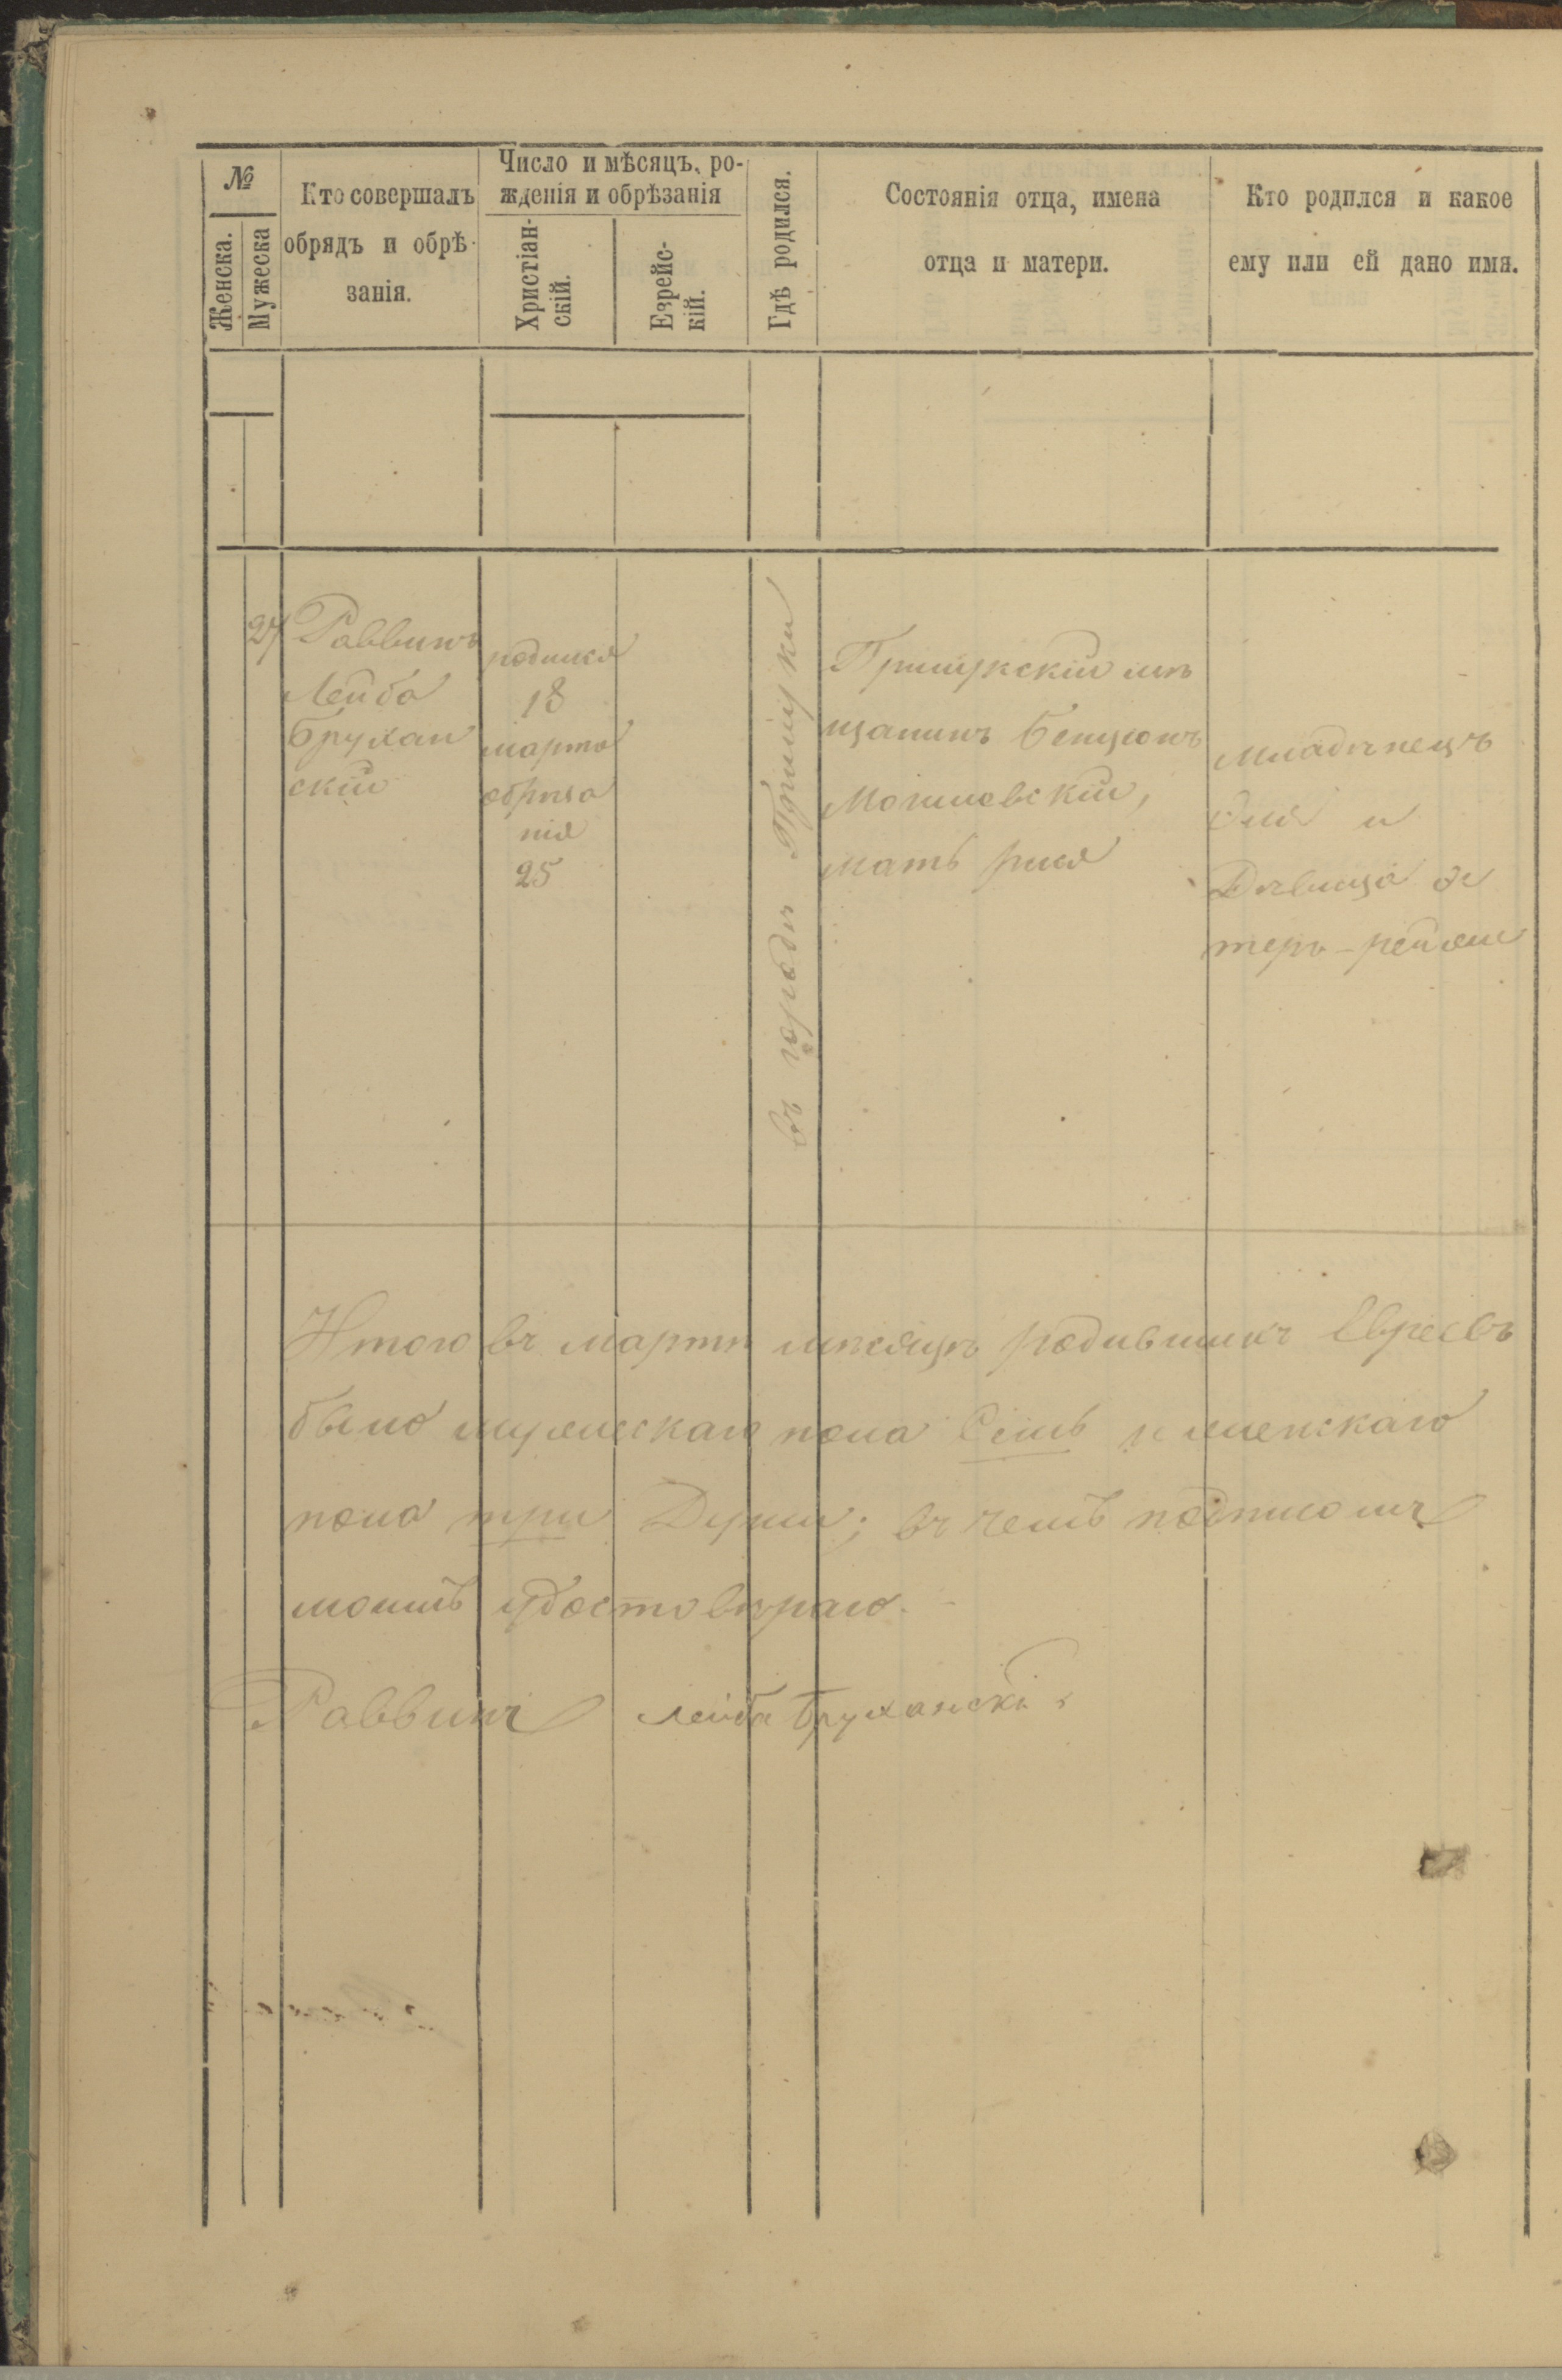 №
Женска.
Мужеска
Кто совершалъ
обрядъ и обрѣ-
занія.
Число и мѣсяцъ, ро-
жденія и обрѣзанія
Христіан-
скій.
Езрейс-
кій.
Гдѣ родился.
Состоянія отца, имена
отца и матери.
Кто родился и какое
ему или ей дано имя.
27
Раввинъ
Лейба
Брухан
скій
родился
18
марта
обрѣза
нія
25
въ городѣ Прилуки
Прилукскій мѣ
щанинъ Бенціонъ
Могилевскій,
мать
младенецъ
и
Дѣвица Эс
теръ-рейзяИтого въ мартѣ мѣсяцѣ родившихъ Евреевъ
было мужескаго пола Семь и женскаго
пола три Души; въ чемъ подписомъ
моимъ удостовѣраю.
Раввинъ Лейба Бруханскі